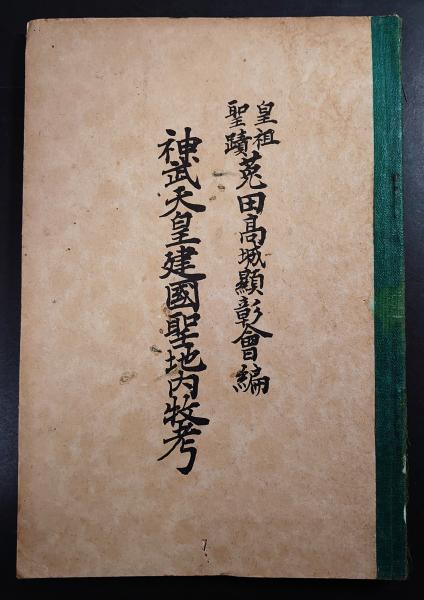 皇祖聖蹟菟田高城顯彰會編
神武天皇建國聖地内牧考